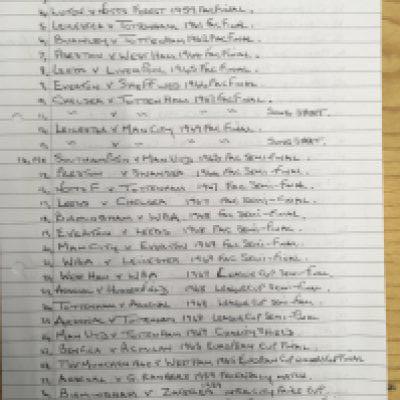 LUTON V NOTTS FOREST 1959 FAC FINAL.
LEICESTER V TOTTENHAM 1961 FAC FINAL.
BURNLEY V TOTTENHAM 1962 FAC FINAL.
PRESTON V WEST HAM 1964 FAC FINAL.
LEEDS V LIVERPOOL 1965 FAC FINAL.
EVERTON V SHEFF WED 1966 FAC FINAL.
CHELSEA V TOTTENHAM 1967 FAC FINAL.
" V " " SONG SHEET.
LEICESTER V MAN CITY 1969 FAC FINAL.
" V " " SONG SHEET.
SOUTHAMPTON V MAN UTD 1963 FAC SEMI-FINAL.
PRESTON V SWANSEA 1964 FAC SEMI-FINAL.
NOTTS F V TOTTENHAM 1967 FAC SEMI-FINAL.
LEEDS V CHELSEA 1967 FAC SEMI-FINAL.
BIRMINGHAM V WBA 1968 FAC SEMI-FINAL.
EVERTON V LEEDS 1968 FAC SEMI-FINAL.
MAN CITY V EVERTON 1969 FAC SEMI-FINAL.
WBA V LEICESTER 1969 FAC SEMI-FINAL.
WEST HAM V WBA LEAGUE CUP SEMI-FINAL.
ARSENAL V HUDDERSFIELD 1968 LEAGUE CUP SEMI FINAL.
TOTTENHAM V ARSENAL 1968 LEAGUE CUP SEMI FINAL.
ARSENAL V TOTTENHAM 1968 LEAGUE CUP SEMI FINAL
MAN UTD V TOTTENHAM 1967 CHARITY SHIELD
BENFICA V AC MILAN 1963 EUROPEAN CUP FINAL.
TSV MUNCHEN 1860 V WEST HAM 1965 EUROPEAN CUP WINNERS CUP FINAL
ARSENAL V G. RANGERS FRIENDLY MATCH.
BIRMINGHAM V ZAGREB INTER CITY FAIRS CUP.